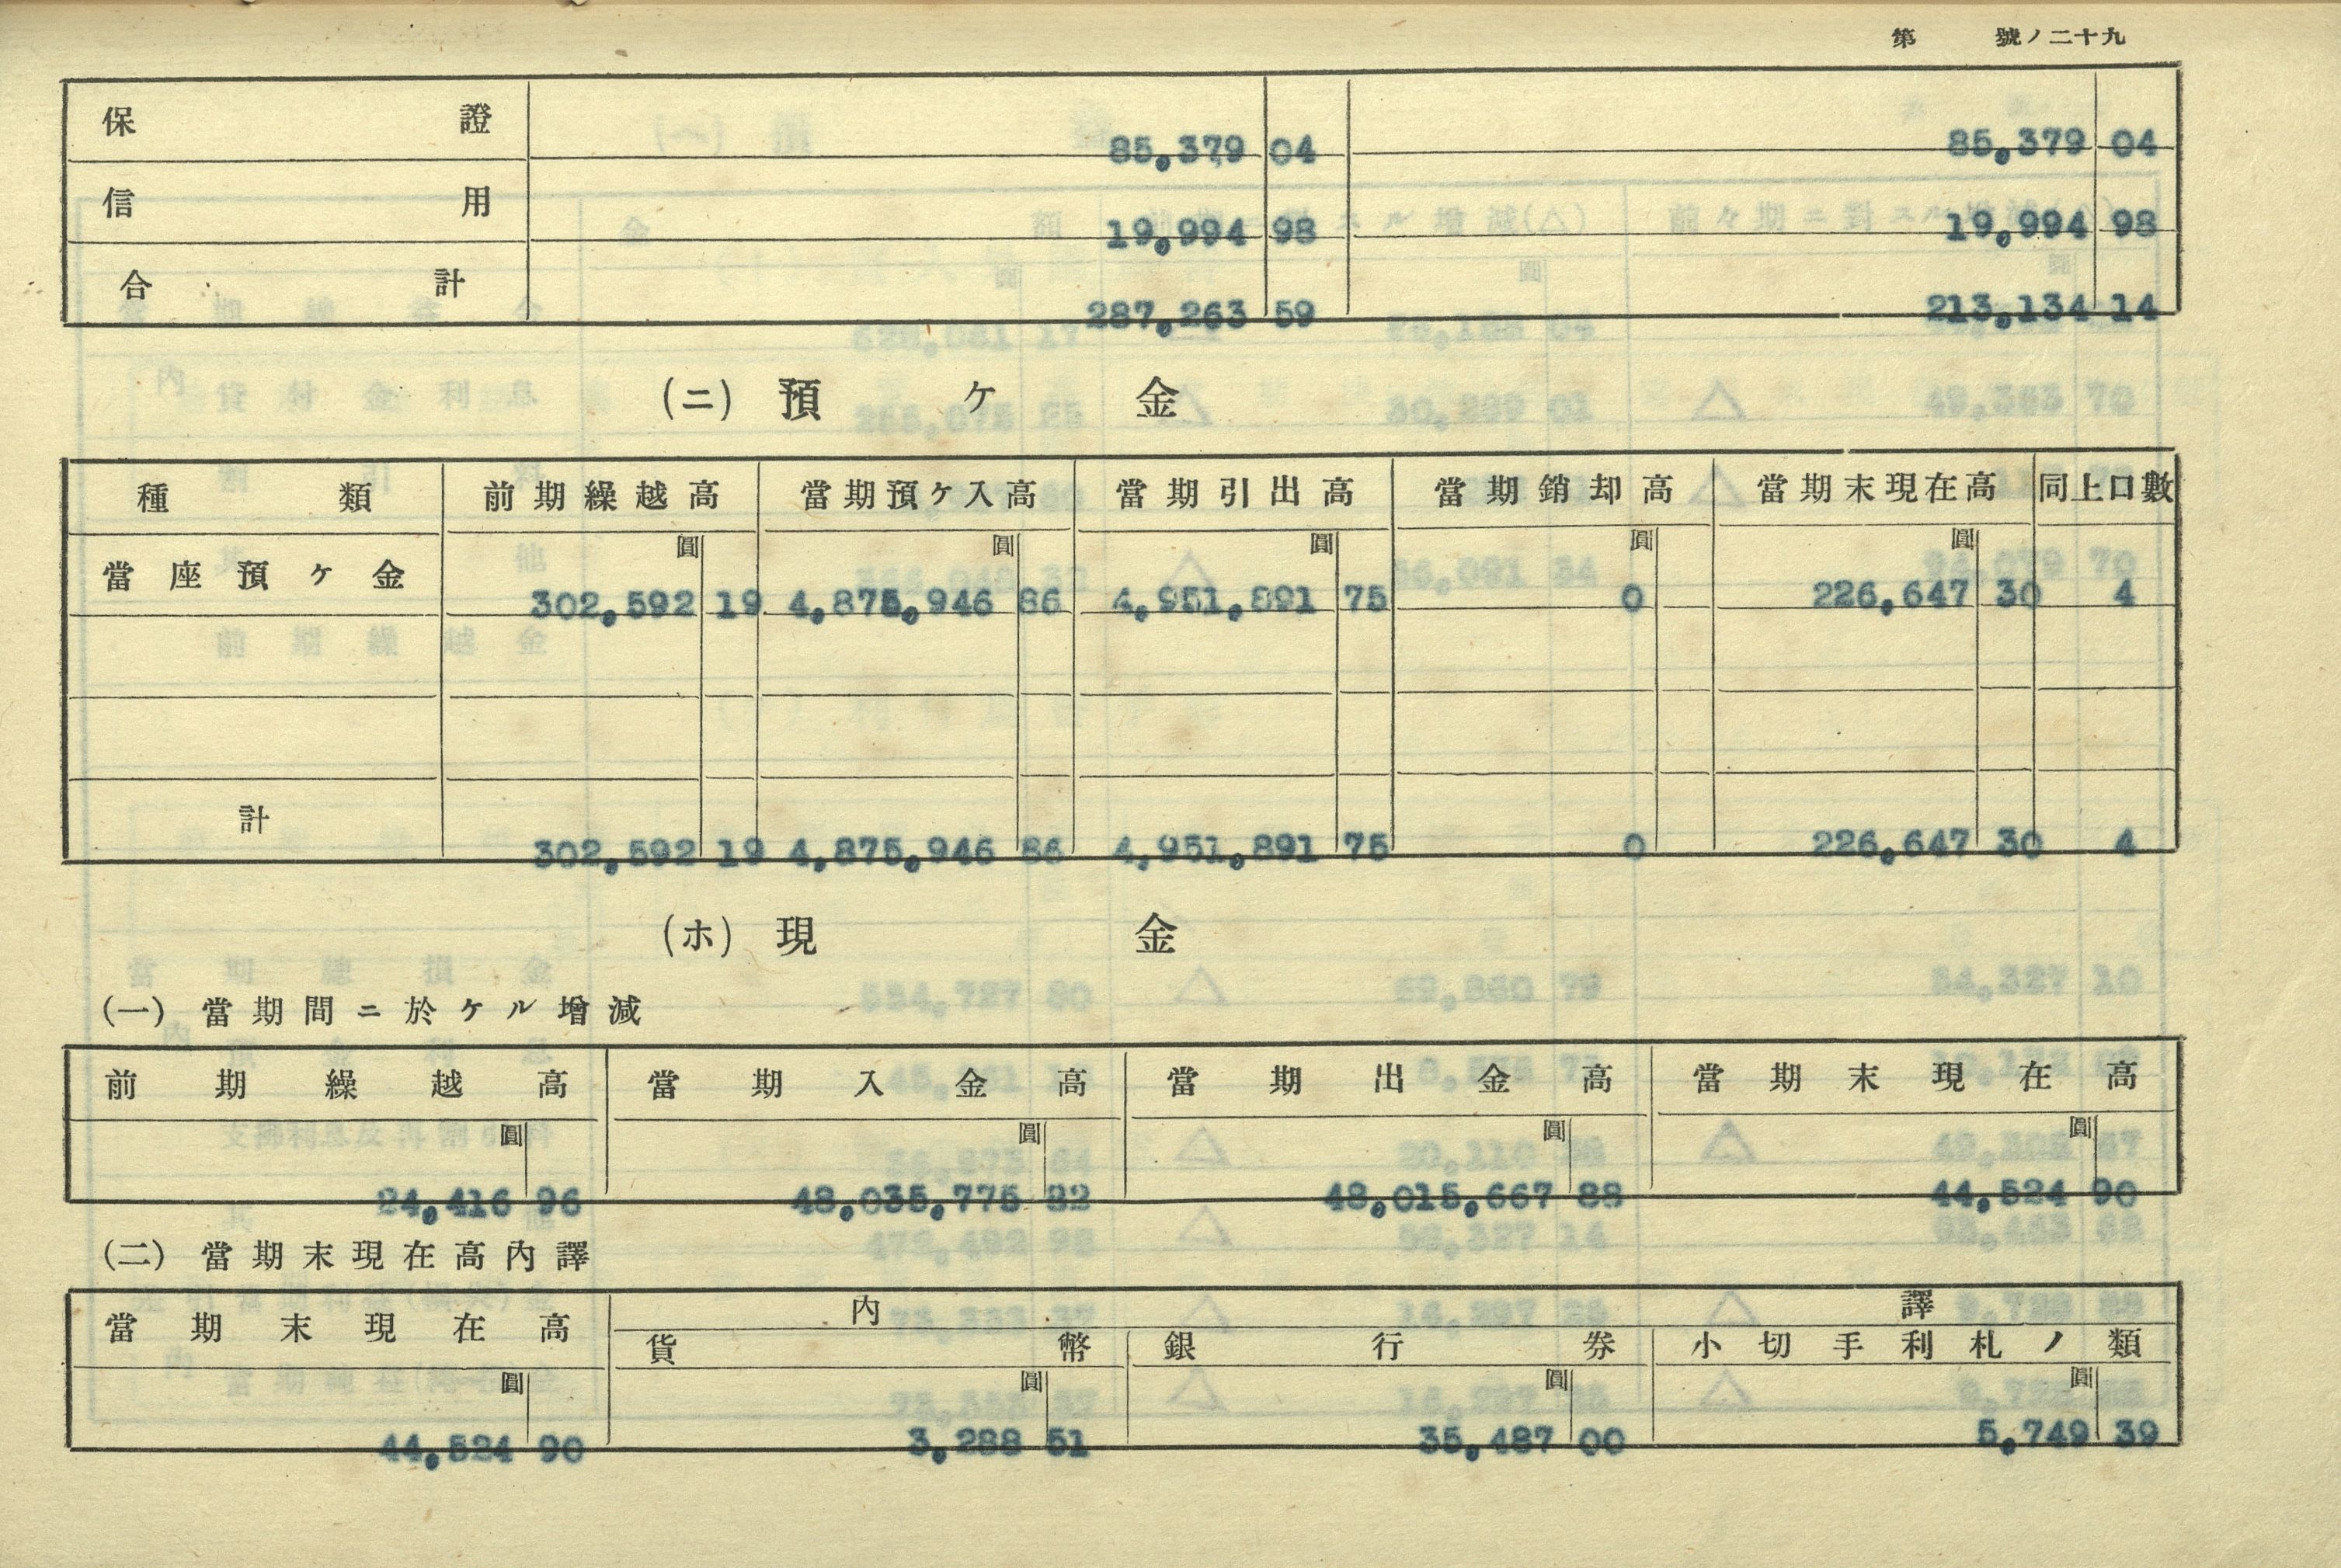 第 號ノ二十九
保證 85,379 04 85,379 04
信用 19,994 98 19,994 98
合計 287,263 59 213,134 14
(ニ) 預ケ金
種類 前期繰越高 當期預ケ入高 當期引出高 當期銷却高 當期末現在高 同上口數
圓 圓 圓 圓 圓
當座預ケ金 302,592 19 4,875,946 86 4,951,891 75 0 226,647 30 4
計 302,592 19 4,875,946 86 4,951,891 75 0 226,647 30 4
(ホ) 現金
(一) 當期間ニ於ケル增減
前期繰越高 當期入金高 當期出金高 當期末現在高
圓 圓 圓 圓
24,416 96 48,035,775 82 48,015,667 88 44,524 90
(二) 當期末現在高內譯
當期末現在高 內譯
貨幣 銀行券 小切手利札ノ類
圓 圓 圓 圓
44,524 90 3,288 51 35,487 00 5,749 39